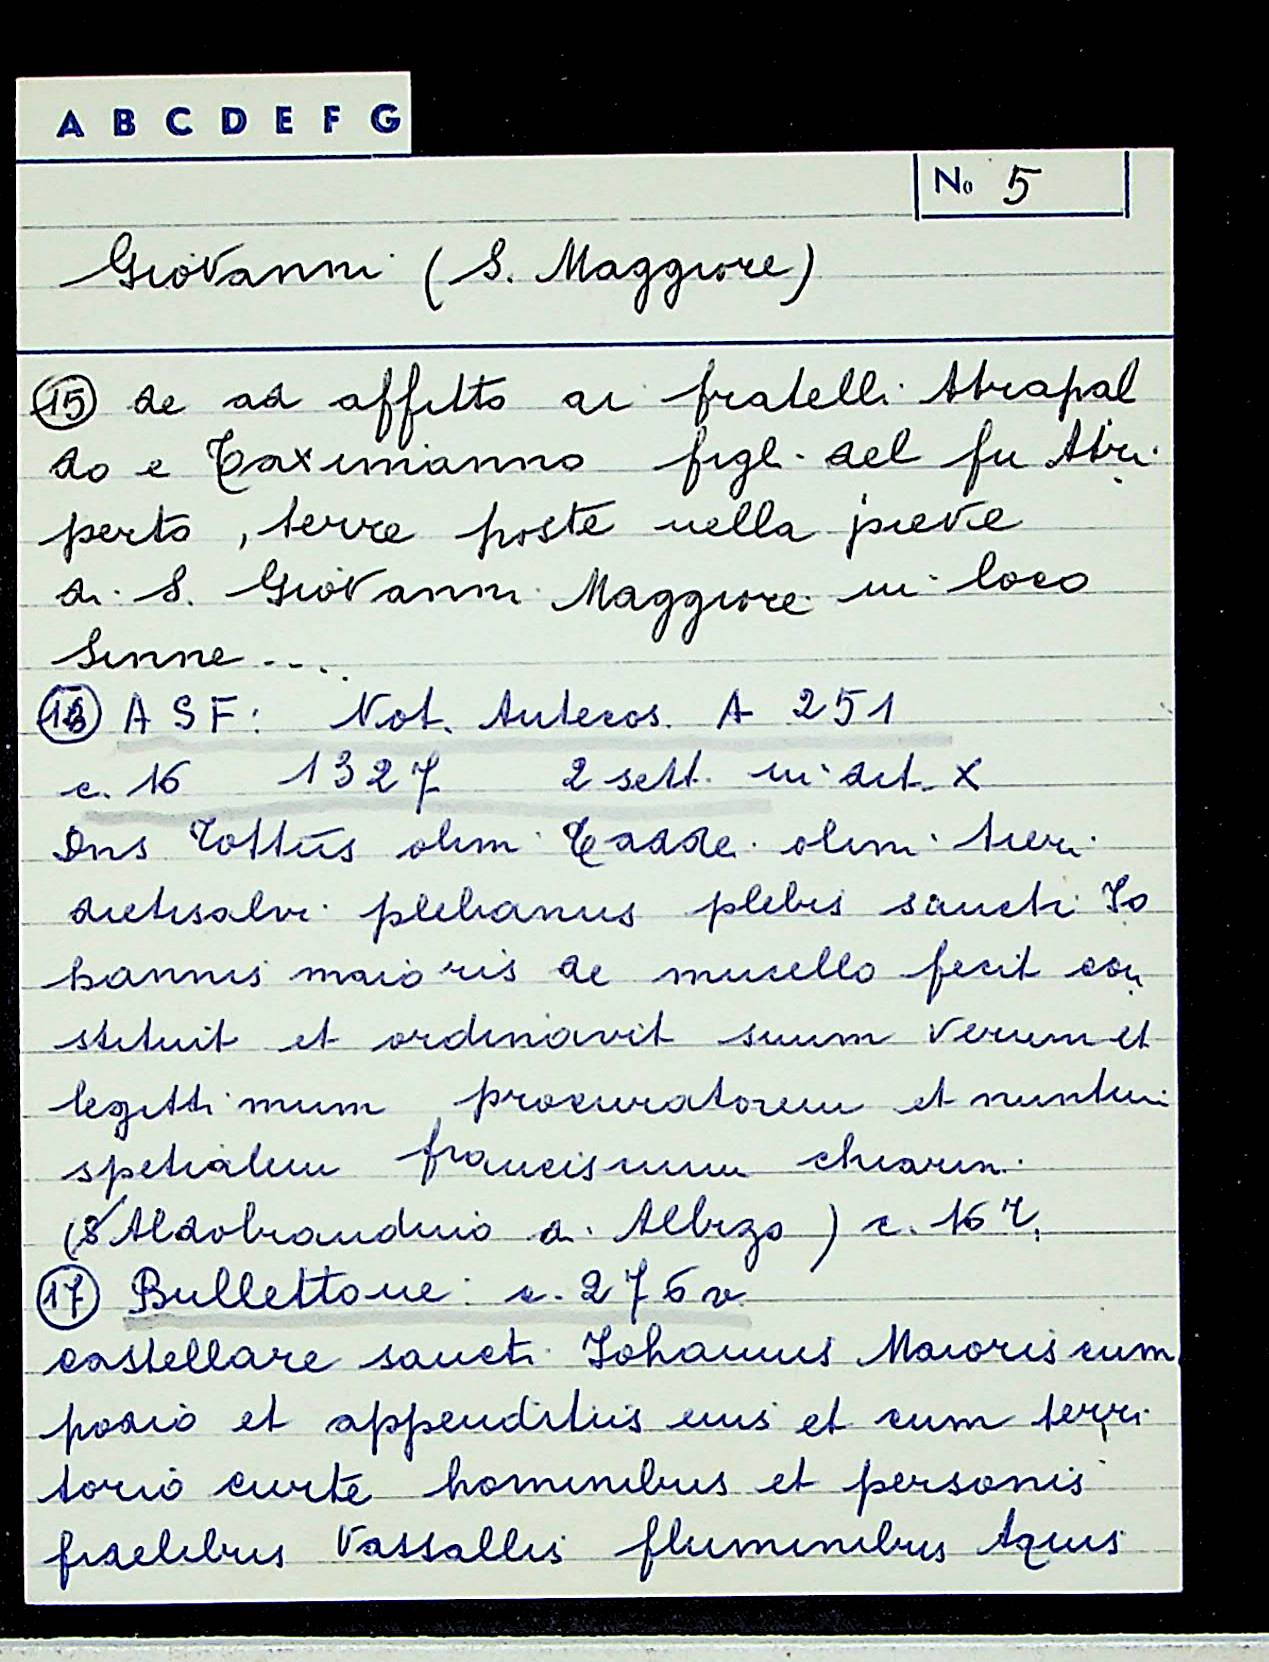 A B C D E F G
No 5
Giovanni (S. Maggiore)
15 de ad affitto ai fratelli Atrapal
do e Taximanno figl. del fu Atri
perto, terre poste nella pieve
di S. Giovanni Maggiore in loco
Sinne...
16 ASF: Not. Antecos. A 251
c. 16 1327 2 sett. indict. X
Dns Tottus olim Tadde olim
dietisalvi plebanus plebis sancti Jo
hannis maioris de mucello fecit con
stituit et ordinavit suum verum et
legittimum procuratorem et nuntium
spetialem chiarin.
(S Aldobrandino di Albizo) c. 16 r.
17 Bullettone c. 276 v
castellare sancti Johannis Maioris cum
podio et appenditiis eius et cum terri
torio curte hominibus et personis
fidelibus Vassallis fluminibus Aquis